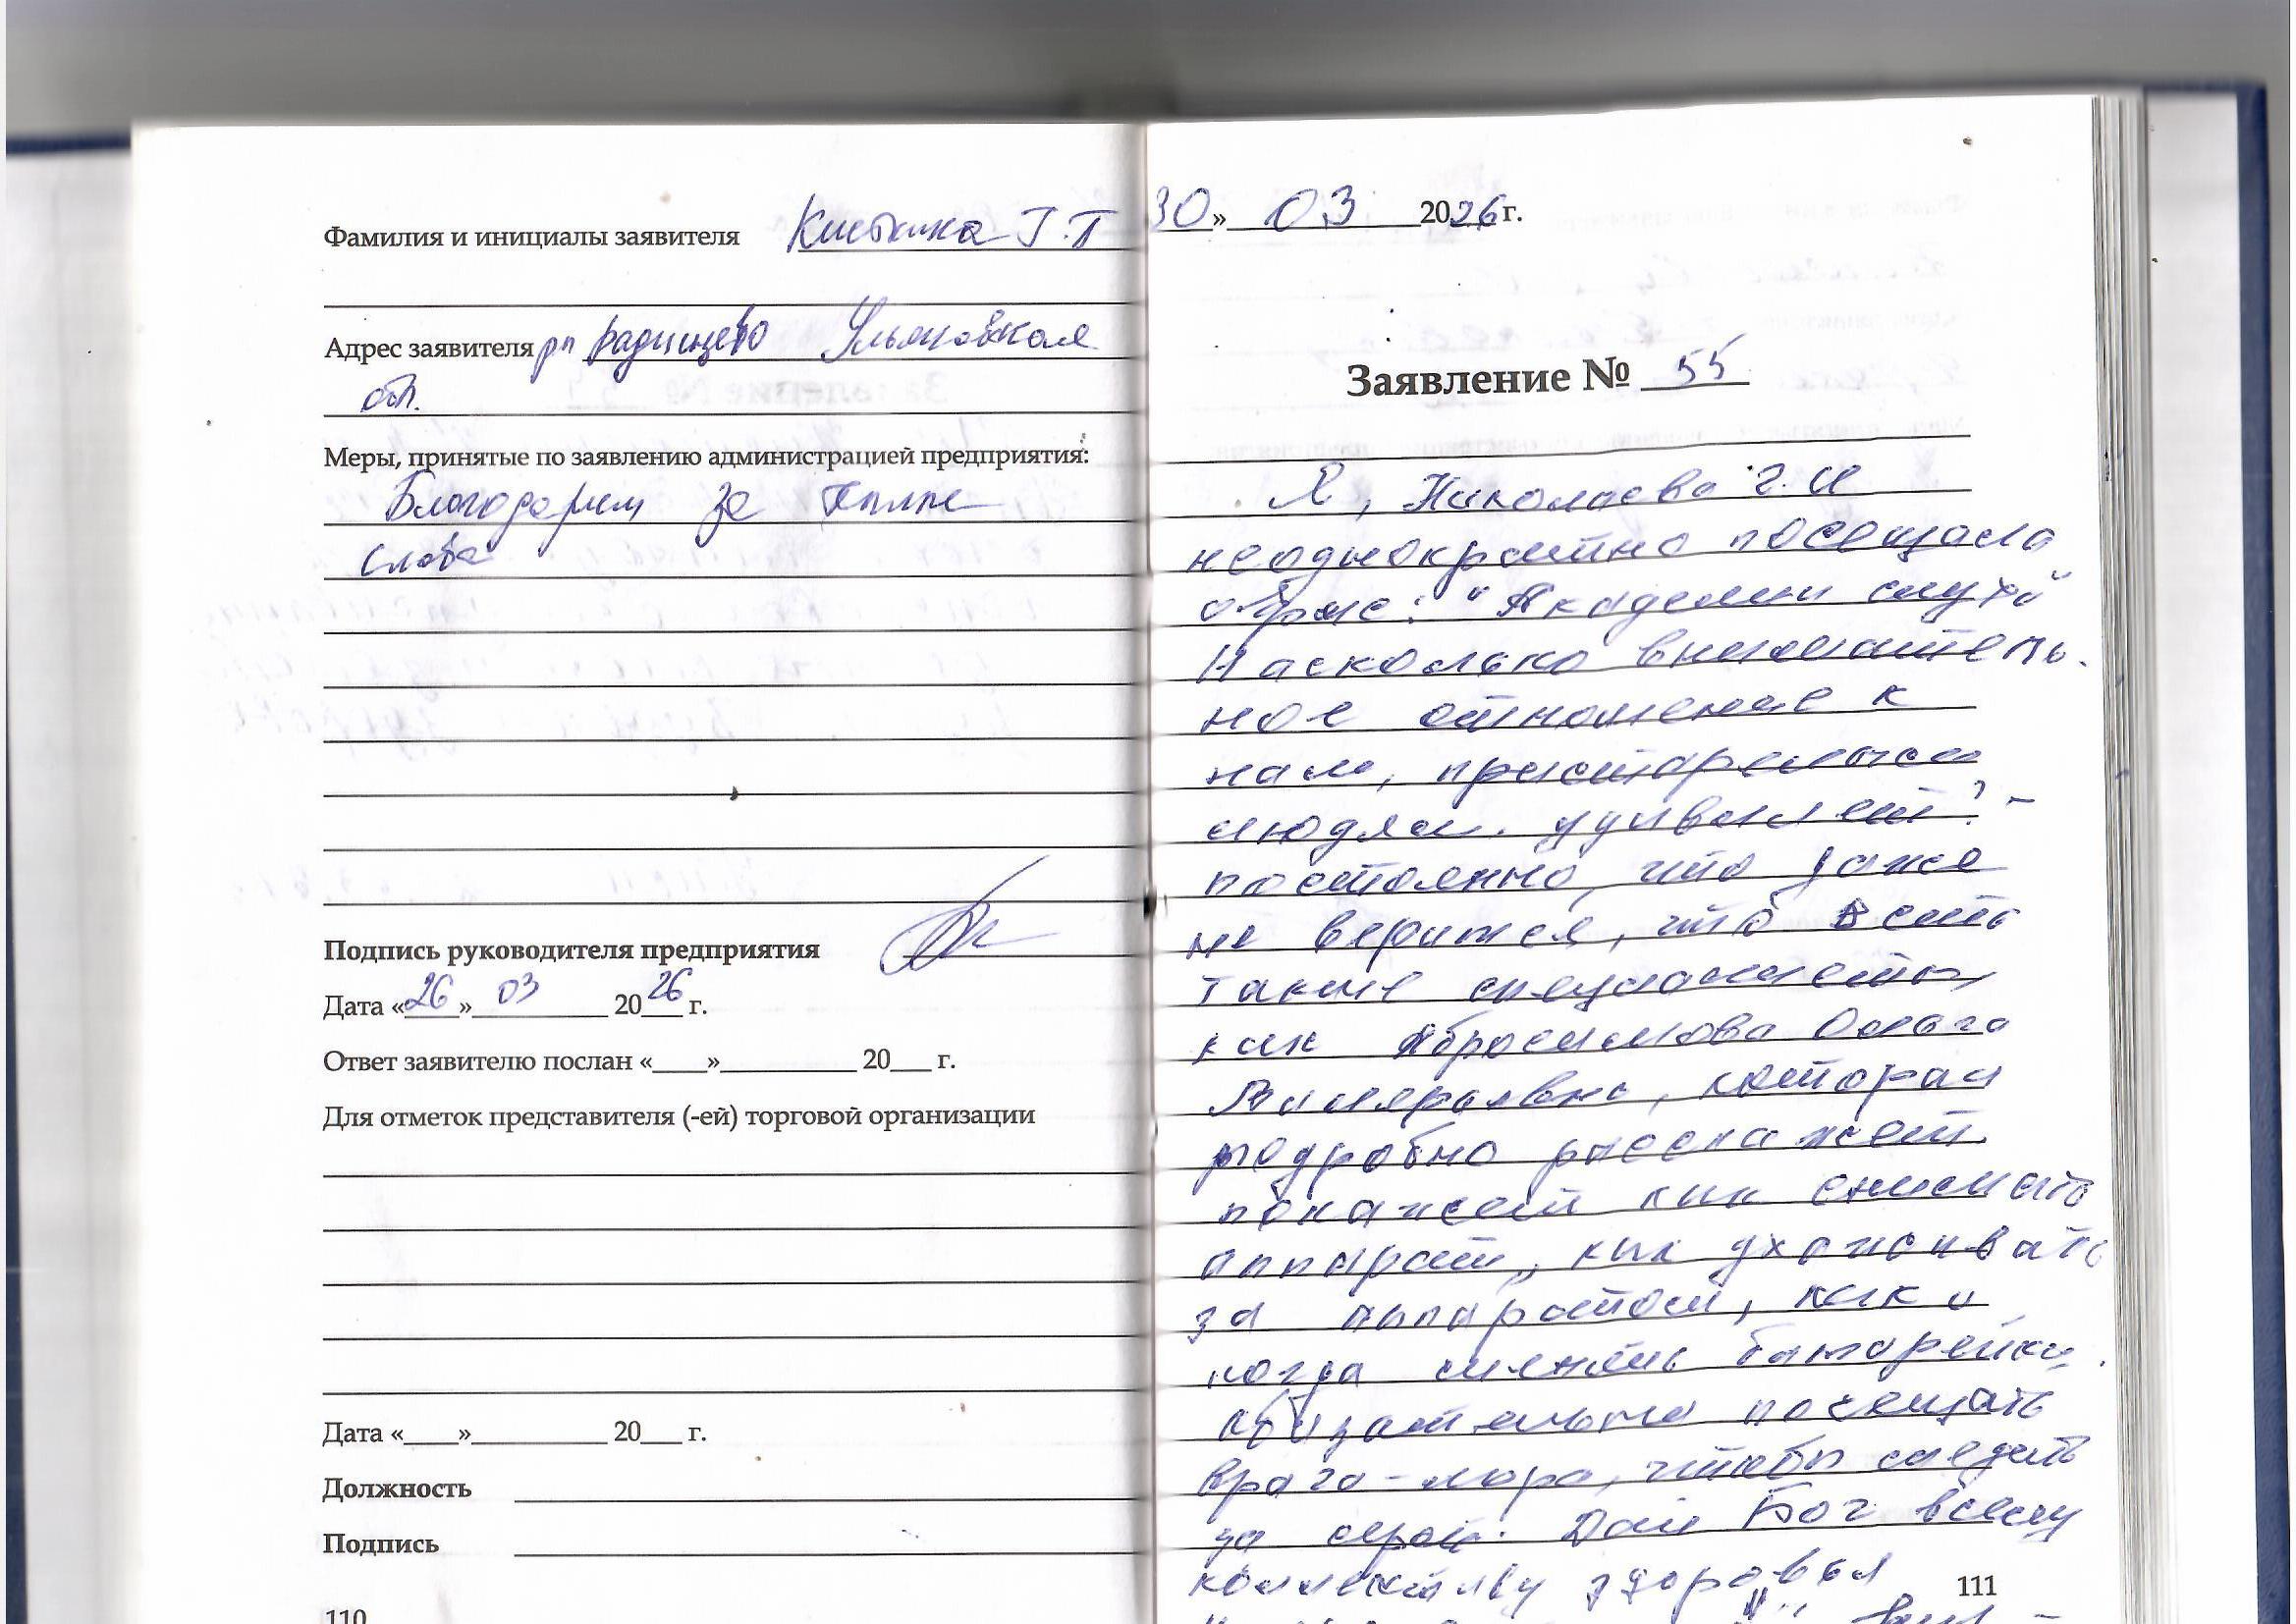 Фамилия и инициалы заявителя Кисткина Г.П
Адрес заявителя рп Радищево Ульяновская
обл.
Меры, принятые по заявлению администрацией предприятия:
Благодарим за тёплые
слова
Подпись руководителя предприятия
Дата «26» 03 2026 г.
Ответ заявителю послан «____»__________ 20___ г.
Для отметок представителя (-ей) торговой организации
Дата «____»__________ 20___ г.
Должность
Подпись
110
30» 03 2026 г.
Заявление № 55
Я, Николаева Г.И
неоднократно посещала
"Академии слуха"
Насколько вниматель-
ное отношение к
нам, престарелым
людям. удивляет? -
постоянно, что даже
не верится, что есть
такие специалисты
как Абросимова Ольга
Валерьевна, которая
подробно расскажет
покажет как снимать
аппарат, как ухаживать
за аппаратом, как и
когда сменять батарейки.
обязательно посещать
врача-лора, чтобы следить
за серой. Дай Бог всему
коллективу здоровья
111